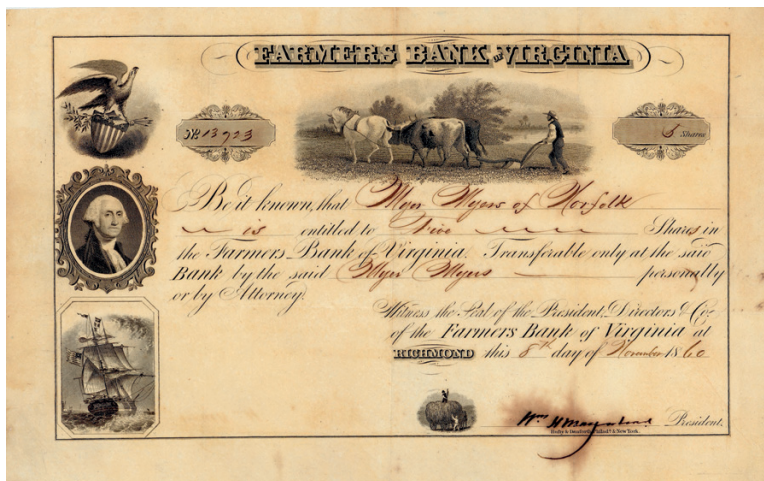 FARMERS BANK OF VIRGINIA
No. 13923
5 Shares
Be it known, that Myer Myers of Norfolk
is entitled to Five Shares in
the Farmers Bank of Virginia. Transferable only at the said
Bank by the said Myer Myers personally
or by Attorney.
Witness the Seal of the President, Directors & Co.
of the Farmers Bank of Virginia at
RICHMOND this 8th day of November 1860
Wm H President.
Danforth, Philad.a & New York.